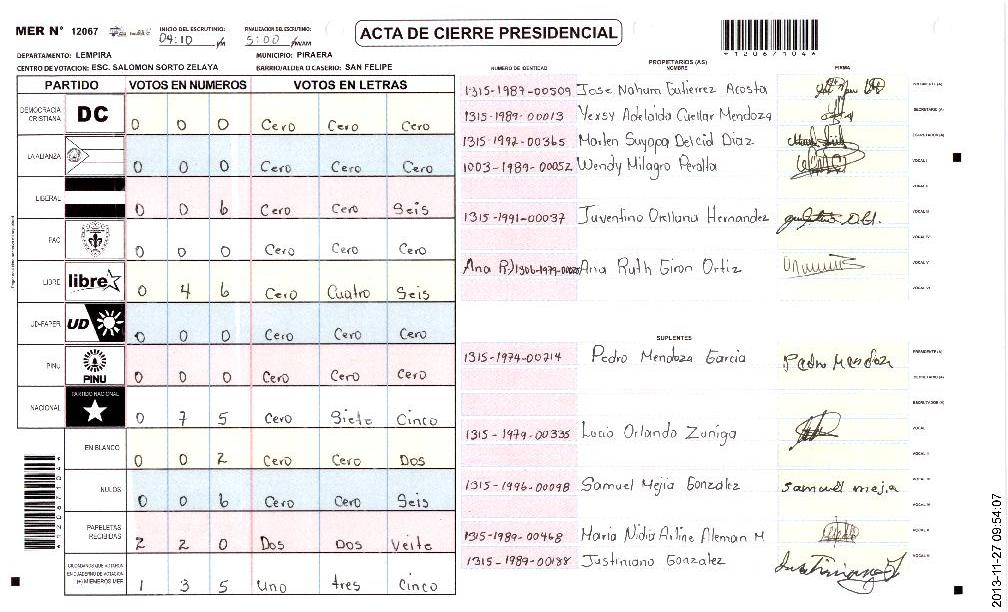 MER N° 12067
INICIO DEL ESCRUTINIO: 04:10 PM
FINALIZACION DEL ESCRUTINIO: 5:00 PM/AM
ACTA DE CIERRE PRESIDENCIAL
DEPARTAMENTO: LEMPIRA
MUNICIPIO: PIRAERA
CENTRO DE VOTACION: ESC. SALOMON SORTO ZELAYA
BARRIO/ALDEA O CASERIO: SAN FELIPE
PARTIDO VOTOS EN NUMEROS VOTOS EN LETRAS
DEMOCRACIA CRISTIANA DC 0 0 0 Cero Cero Cero
LA ALIANZA 0 0 0 Cero Cero Cero
LIBERAL 0 0 6 Cero Cero Seis
PAC 0 0 0 Cero Cero Cero
LIBRE libre 0 4 6 Cero Cuatro Seis
UD-FAPER UD 0 0 0 Cero Cero Cero
PINU PINU 0 0 0 Cero Cero Cero
NACIONAL PARTIDO NACIONAL 0 7 5 Cero Siete Cinco
EN BLANCO 0 0 2 Cero Cero Dos
NULOS 0 0 6 Cero Cero Seis
PAPELETAS RECIBIDAS 2 2 0 Dos Dos Veite
CIUDADANOS QUE VOTARON EN CUADERNO DE VOTACION (+) MIEMBROS MER 1 3 5 Uno tres Cinco
PROPIETARIOS (AS)
NUMERO DE IDENTIDAD NOMBRE FIRMA
1315-1989-00509 Jose Nahum Gutierrez Acosta PRESIDENTE (A)
1315-1989-00013 Yexsy Adelaida Cuellar Mendoza SECRETARIO (A)
1315-1992-00365 Marlen Suyapa Delcid Diaz ESCRUTADOR (A)
1003-1989-00052 Wendy Milagro Peralta VOCAL I
VOCAL II
1315-1991-00037 Juventino Orellana Hernandez VOCAL III
VOCAL IV
Ana R) Ana Ruth Giron Ortiz VOCAL V
VOCAL VI
SUPLENTES
1315-1974-00214 Pedro Mendoza Garcia Pedro Mendoza PRESIDENTE (A)
SECRETARIO (A)
ESCRUTADOR (A)
1315-1979-00335 Lucio Orlando Zuniga VOCAL I
VOCAL II
1315-1996-00098 Samuel Mejia Gonzalez samuell mejia VOCAL III
VOCAL IV
1315-1989-00468 Maria Nidia Arline Aleman M VOCAL V
1315-1989-00188 Justiniano Gonzalez VOCAL VI
*12067104*
2013-11-27 09:54:07